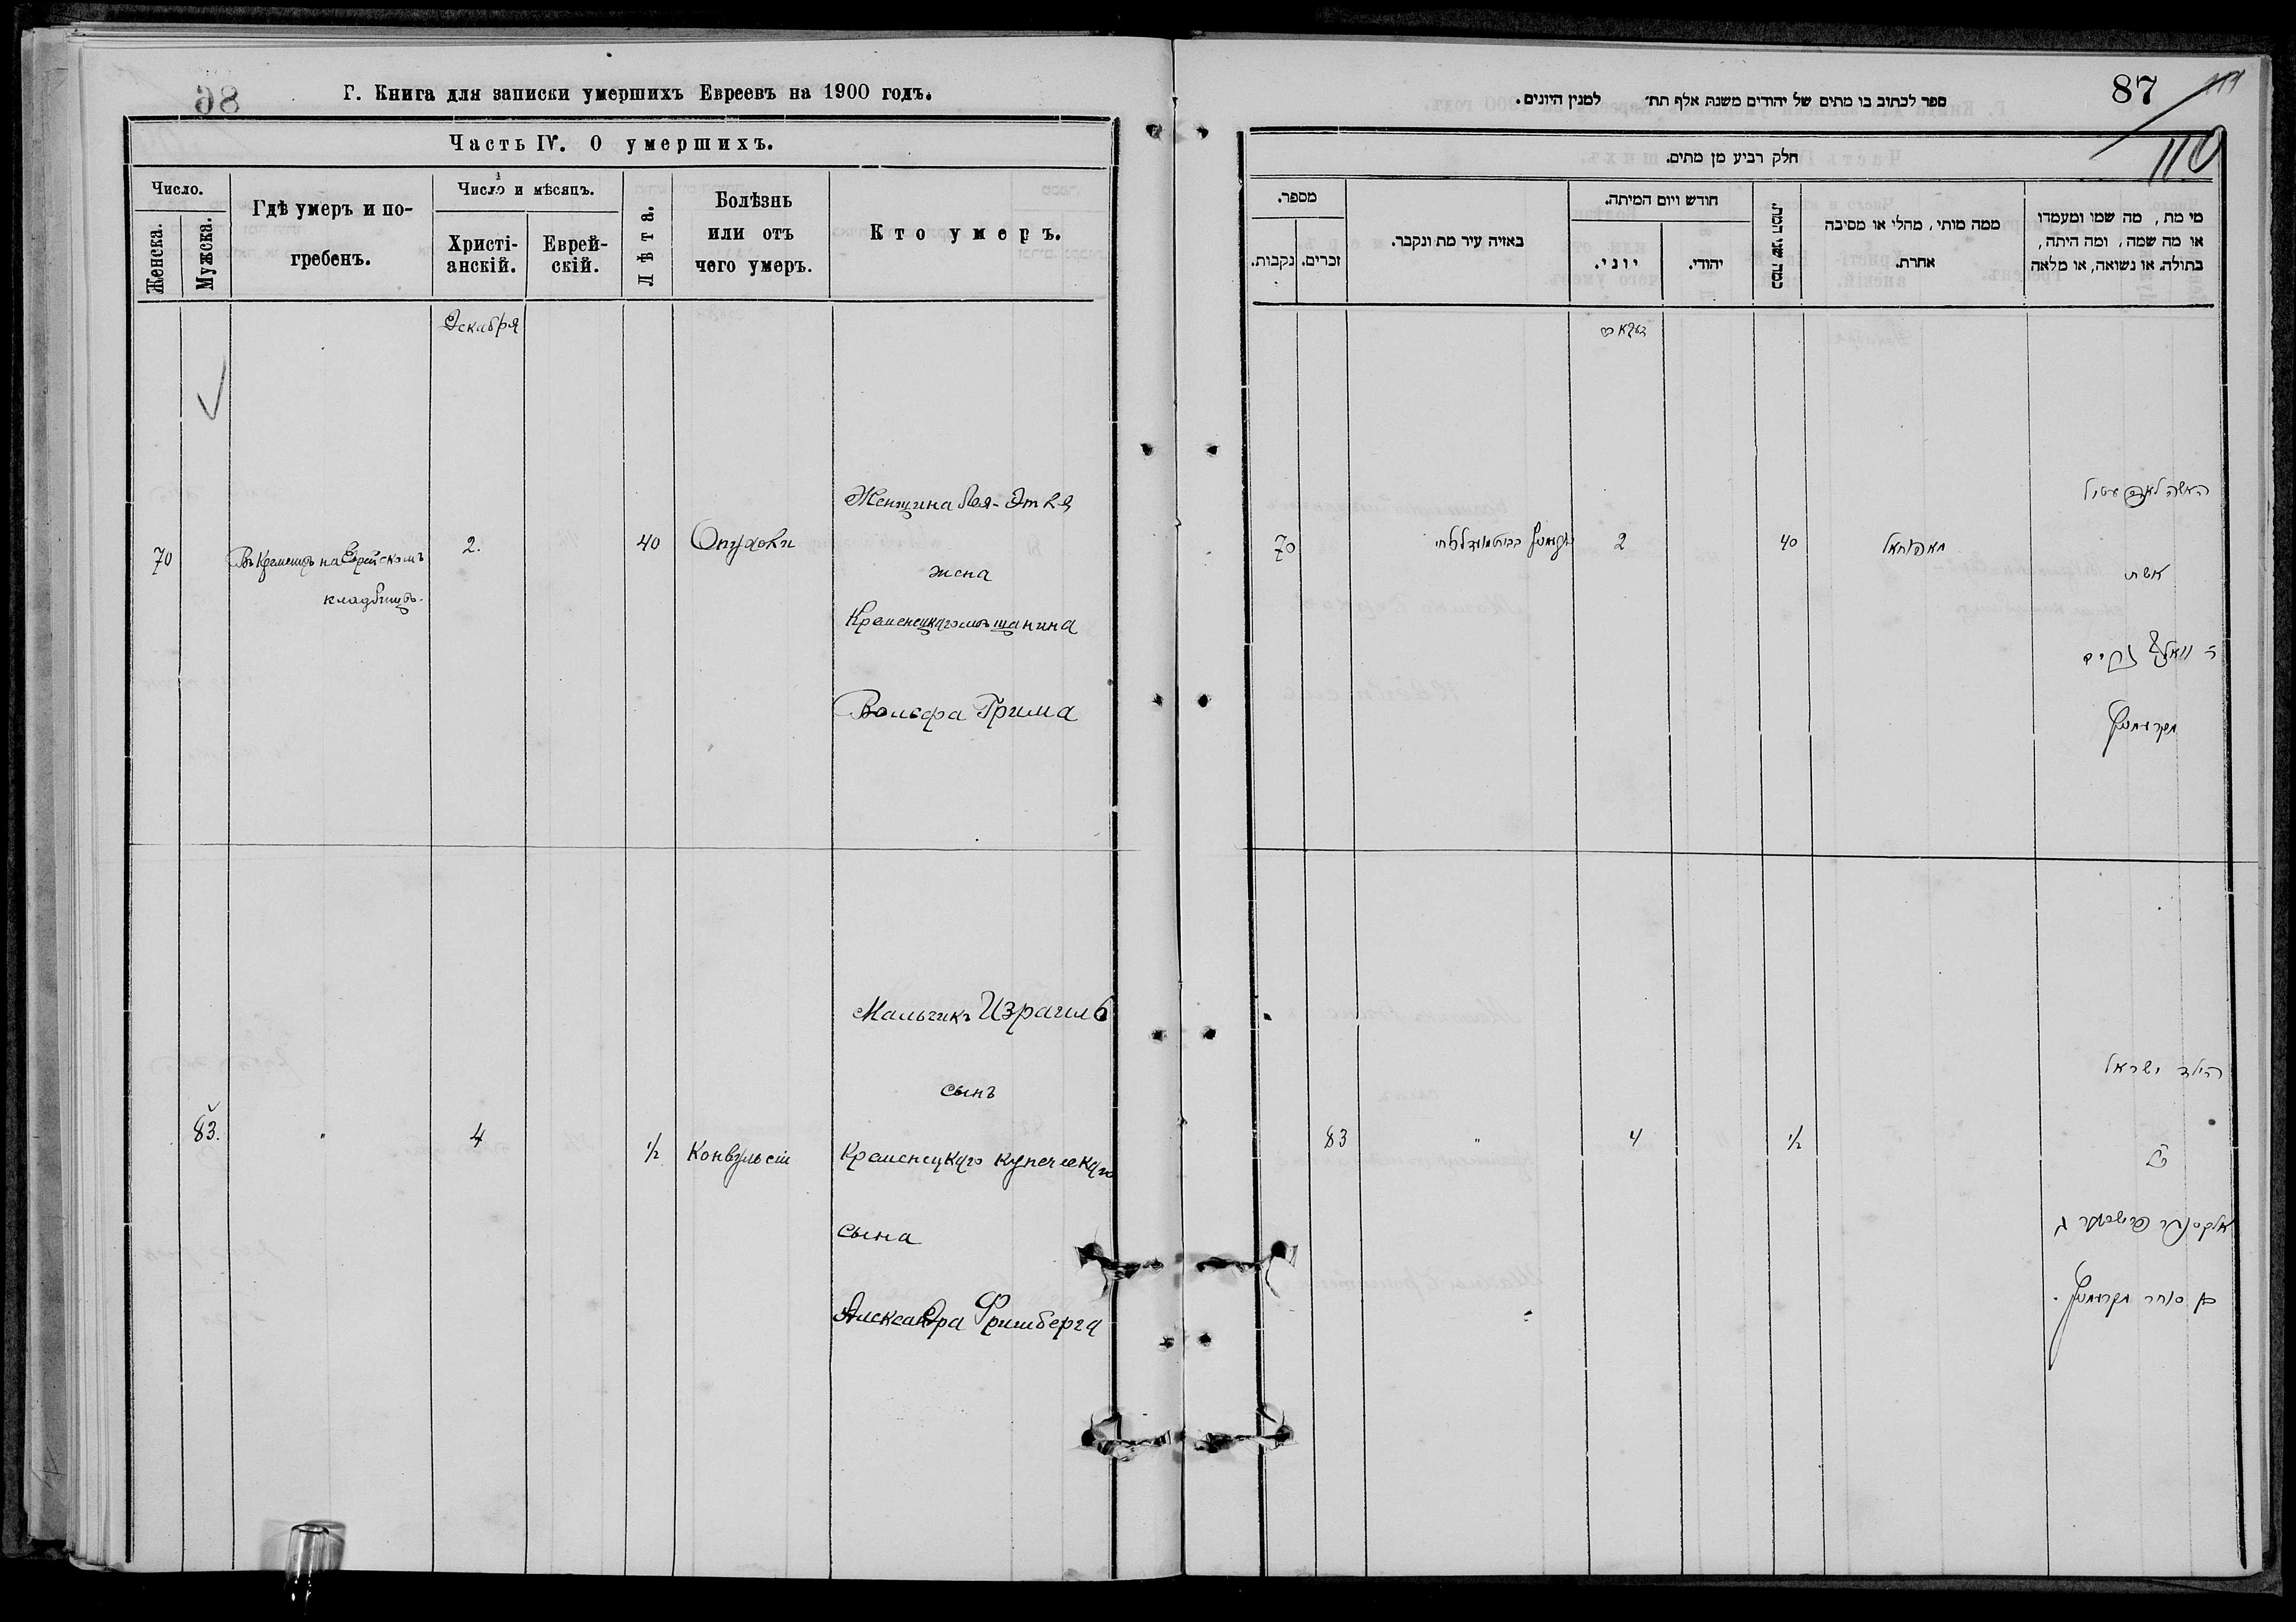 Г. Книга для записки умершихъ Евреевъ на 1900 годъ.
Часть IV. О умершихъ.
Число.
Женска.
Мужска.
Гдѣ умеръ и по-
гребенъ.
Число и мѣсяцъ.
Христі-
анскій.
Еврей-
скій.
Лѣта.
Болѣзнь
или отъ
чего умеръ.
Кто умеръ.
Декабря
70
Въ Кременцѣ на Еврейскомъ
кладбищѣ.
2.
40
Опухоли
Женщина Лея-Этля
жена
Кременецкаго мѣщанина
Вольфа Грима
83.
"
4
1/2
Конвульсіи
Мальчикъ Израиль
сынъ
Кременецкаго купеческаго
сына
Александра Фришберга
87
110
ספר לכתוב בו מתים של יהודים משנת אלף תת׳ למנין היונים.
חלק רביע מן מתים.
מספר.
נקבות.
זכרים.
באיזה עיר מת ונקבר.
חודש ויום המיתה.
יוני.
יהודי.
כמה שני המת.
ממה מותי, מחלי או מסיבה
אחרת.
מי מת, מה שמו ומעמדו
או מה שמה, ומה היתה,
בתולה או נשואה, או מלאה
70
2
40
האשה לאה עטיל
אשת
מקרעמניץ
83
"
4
1/2
הילד ישראל
בן
אלקסנדר פרישבערג
בן סוחר מקרעמניץ.